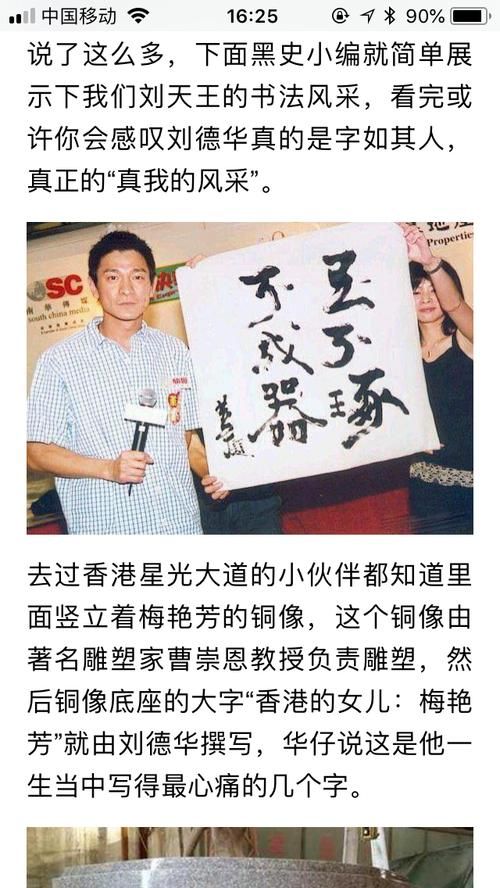 中国移动 16:25 90%
说了这么多，下面黑史小编就简单展
示下我们刘天王的书法风采，看完或
许你会感叹刘德华真的是字如其人，
真正的“真我的风采”。
SC
南華傳媒
south china media
地產
Properties
玉不琢
不成器
去过香港星光大道的小伙伴都知道里
面竖立着梅艳芳的铜像，这个铜像由
著名雕塑家曹崇恩教授负责雕塑，然
后铜像底座的大字“香港的女儿：梅艳
芳”就由刘德华撰写，华仔说这是他一
生当中写得最心痛的几个字。